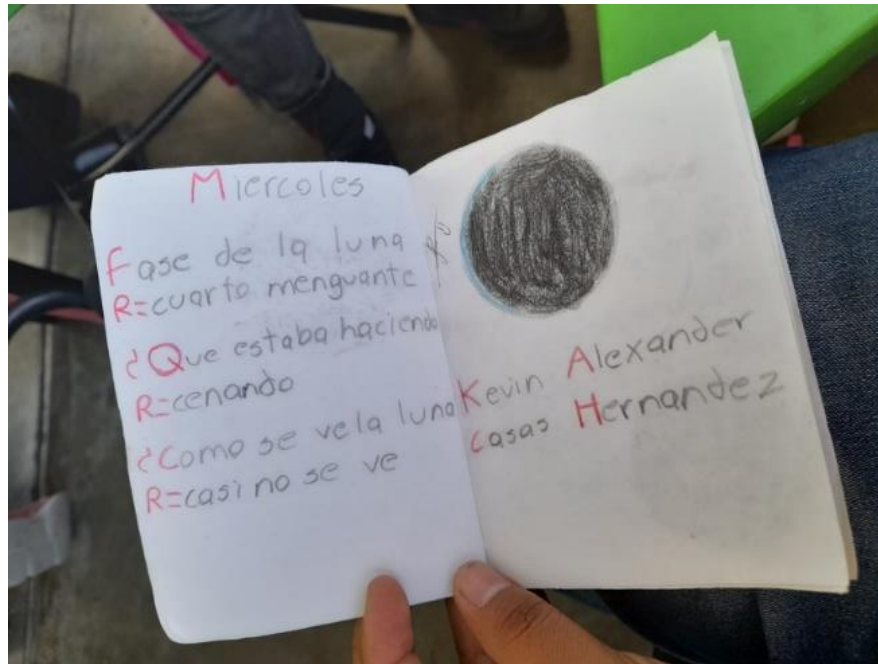 Miercoles
Fase de la luna
R=cuarto menguante
¿Que estaba haciendo
R=cenando
¿Como se ve la luna
R=casi no se ve
Kevin Alexander
Casas Hernandez